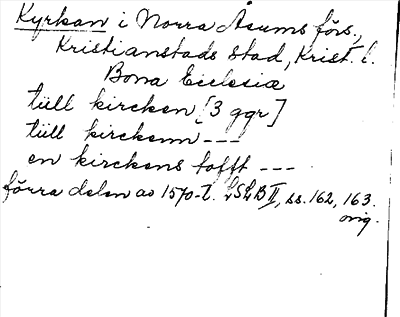 Kyrkan i Norra Åsums förs.,
Kristianstads stad, Krist. l.
Bona Ecclesiæ
tiill kircken [3 ggr]
tiill kirckenn ---
en kirckens tofft ---
förra delen av 1570-t. LSLB II, ss. 162, 163.
orig.